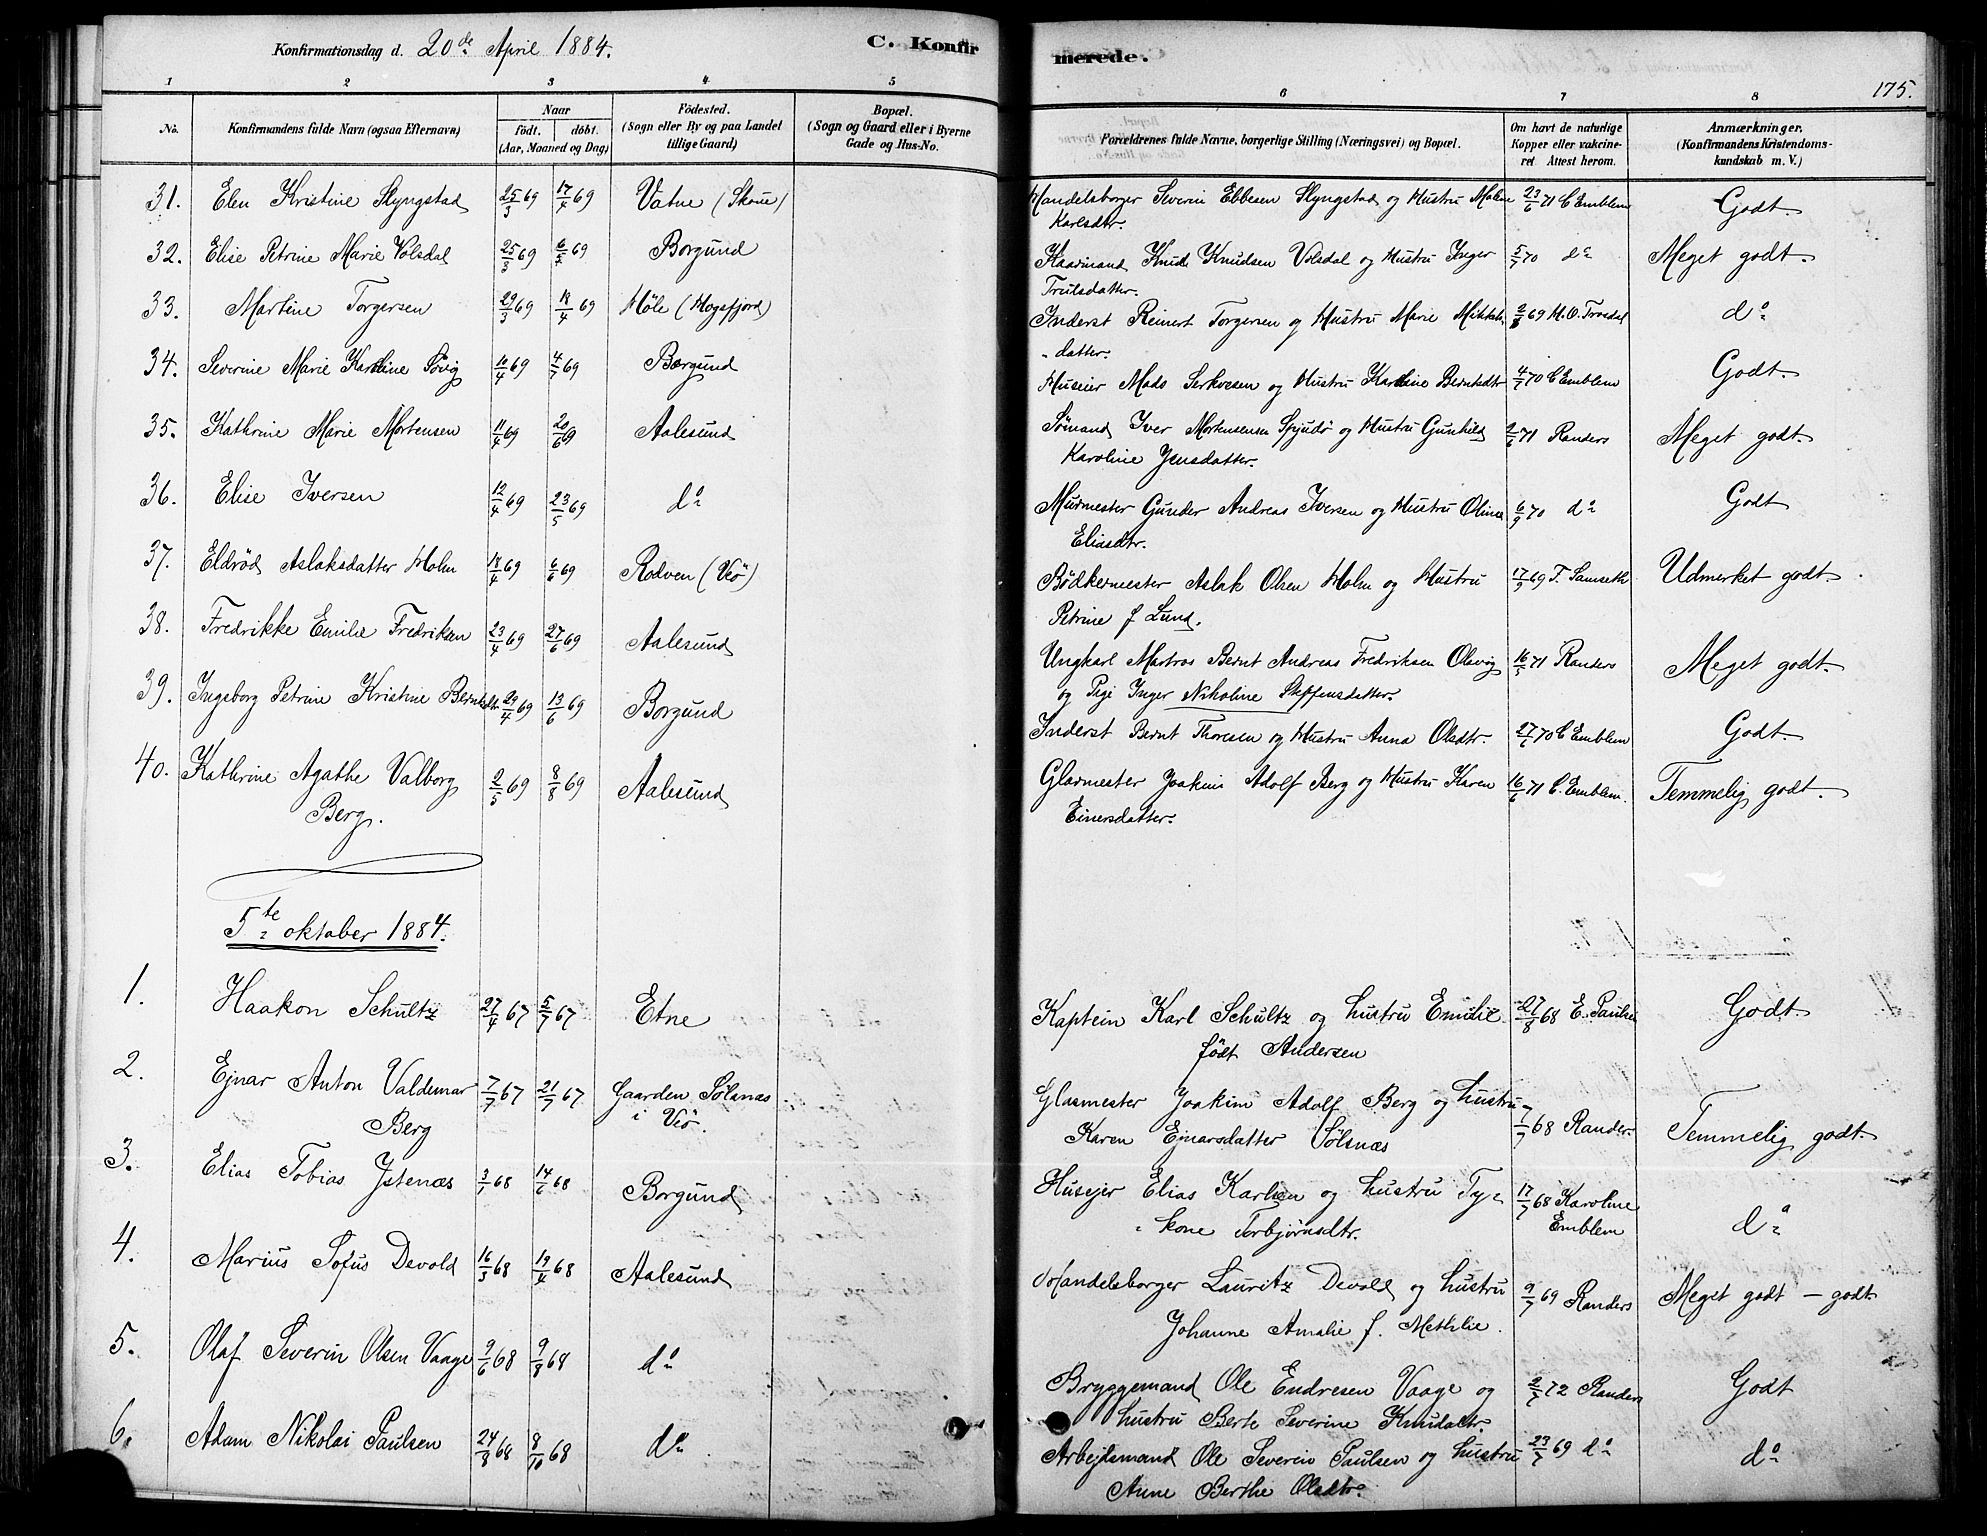 Konfirmationsdag d. 20de April 1884.
C. Konfirmerede.
175.
1 2 3 4 5 6 7 8
No.
Konfirmandens fulde Navn (ogsaa Efternavn)
Naar
født. døbt.
(Aar, Maaned og Dag)
Fødested.
(Sogn eller By og paa Landet
tillige Gaard)
Bopæl.
(Sogn og Gaard eller i Byerne
Gade og Hus-No.
Forældrenes fulde Navne, borgerlige Stilling (Næringsvei) og Bopæl.
Om havt de naturlige
Kopper eller vakcineret. Attest herom.
Anmærkninger.
(Konfirmandens Kristendomskundskab m. V.)
31. Elen Kristine Slyngstad 25/3 69 17/4 69 Vatne (Skoue) Handelsborger Severin Ebbesen Slyngstad og Hustru Malene 23/6 71 C Emblem Godt.
Karlsdtr.
32. Elise Petrine Marie Volsdal 25/3 69 6/4 69 Borgund Kaarmand Knud Knudsen Volsdal og Hustru Inger 5/7 70 do Meget godt.
Trulsdatter.
33. Martine Torgersen 29/3 69 18/4 69 Høle (Høgsfjord) Inderst Reinert Torgersen og Hustru Marie Mikkels- 2/8 69 M.O. Trosdal do
datter.
34. Severine Marie Karoline Søvig 10/4 69 4/7 69 Borgund Huseier Mads Serkvesen og Hustru Karoline Berntsdtr 4/7 70 C Emblem Godt.
35. Kathrine Marie Mortensen 11/4 69 20/6 69 Aalesund Sømand Iver Mortensen Spjudø og Hustru Gunhild 2/6 71 Randers Meget godt.
Karoline Jensdatter.
36. Elise Iversen 12/4 69 23/5 69 do Murmester Gunder Andreas Iversen og Hustru Oline 6/9 70 do Godt
Eliasdtr.
37. Eldrød Aslaksdatter Holm 18/4 69 6/6 69 Rødven (Veø) Bødkermester Aslak Olsen Holm og Hustru 17/9 69 T. Samseth Udmerket godt.
Petrine f Lund.
38. Fredrikke Emilie Fredriksen 23/4 69 27/6 69 Aalesund Ungkarl Matros Bernt Andreas Fredriksen Olsvig 16/5 71 Randers Meget godt.
og Pige Inger Nikoline Steffensdatter.
39. Ingeborg Petrine Kristine Berntsdtr 29/4 69 13/6 69 Borgund Inderst Bernt Thoresen og Hustru Anna Olsdtr. 27/6 70 C Emblem Godt.
40. Kathrine Agathe Valborg 2/5 69 8/8 69 Aalesund Glasmester Joakim Adolf Berg og Hustru Karen 16/6 71 C. Emblem. Temmelig godt.
Berg. Einersdatter.
5te oktober 1884.
1. Haakon Schultz 27/4 67 5/7 67 Etne Kaptein Karl Schultz og hustru Emilie 27/8 68 E. Paulsen Godt
født Andersen
2. Ejnar Anton Valdemar 7/7 67 21/7 67 Gaarden Sølsnæs Glasmester Joakim Adolf Berg og hustru 7/7 68 Randers. Temmelig godt.
Berg i Veø. Karen Ejnarsdatter Sølsnæs
3. Elias Tobias Ystenæs 3/7 68 14/6 68 Borgund Husejer Elias Karlsen og hustru Ty- 17/7 68 Karoline do
kone Torbjørnsdtr. Emblem
4. Marius Sofus Devold 16/3 68 19/4 68 Aalesund Handelsborger Lauritz Devold og hustru 9/7 69 Randers Meget godt - godt.
Johanne Amalie f. Methlie.
5. Olaf Severin Olsen Vaage 9/6 68 9/8 68 do Bryggemand Ole Endresen Vaage og 2/7 72 Randers Godt
hustru Berte Severine Knudsdtr.
6. Adam Nikolai Paulsen 24/8 68 8/10 68 do Arbejdsmand Ole Severin Paulsen og hustru 23/7 69 do do
Anne Berthe Olsdtr.